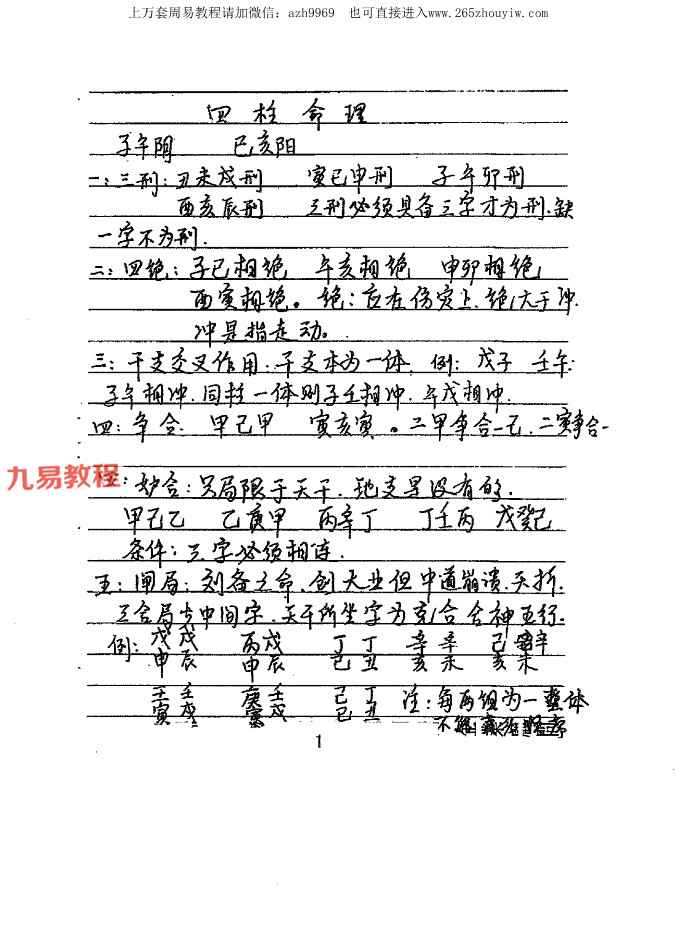 上万套周易教程请加微信：azh9969 也可直接进入www.265zhouyiw.com
四柱命理
子午阴 巳亥阳
一：三刑：丑未戌刑 寅巳申刑 子午卯刑
酉亥辰刑 三刑必须具备三字才为刑.缺
一字不为刑.
二：四绝：子巳相绝 午亥相绝 申卯相绝
酉寅相绝。绝：应在伤灾上.绝大于冲.
冲是指走动。
三：干支交叉作用：干支本为一体.例：戊子 壬午：
子午相冲.同柱一体则子壬相冲.午戊相冲.
四：争合. 甲己甲 寅亥寅。二甲争合一己.二寅争合一
九易教程
妒合：只局限于天干.地支是没有的.
甲己乙 乙庚甲 丙辛丁 丁壬丙 戊癸己
条件：三字必须相连.
五：闸局：刘备之命.创大业但中道崩溃.夭折.
三合局去中间字.天干所坐字为克合合神五行.
例：戊戌 丙戌 丁丁 辛辛 己辛
申辰 申辰 巳丑 亥未 亥未
壬壬 庚壬 己丁 注：每两组为一整体
寅戌 寅戌 巳丑
1